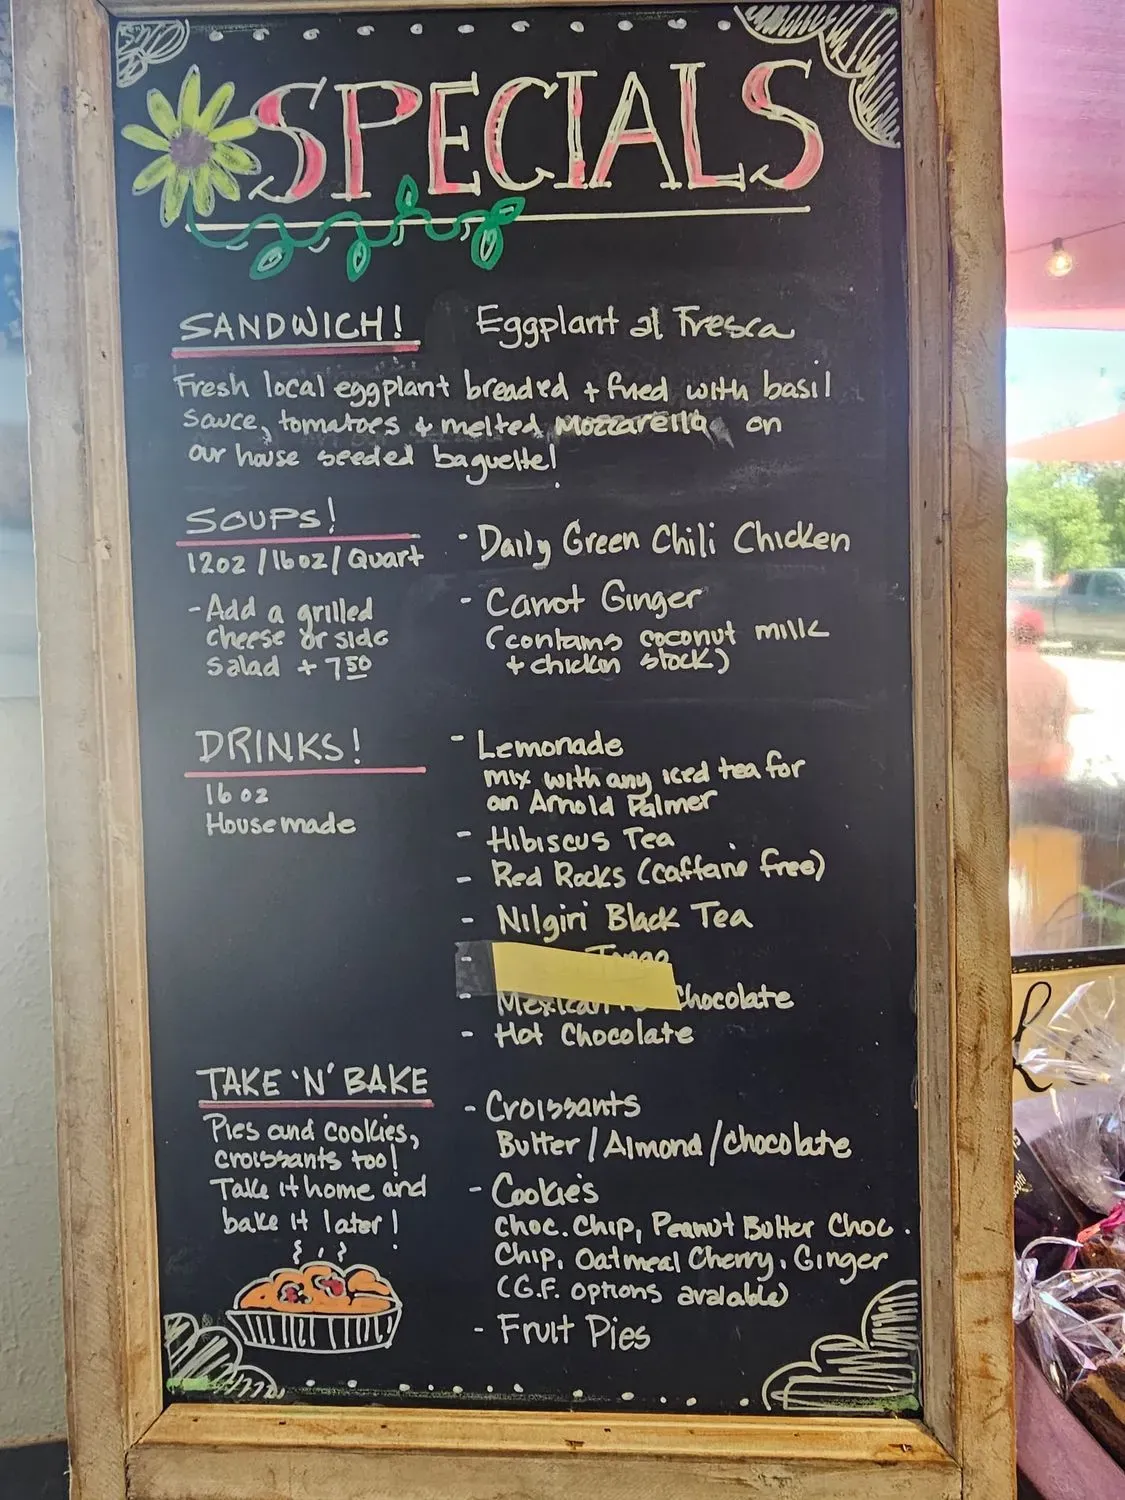 SPECIALS
SANDWICH! Eggplant al Fresca
Fresh local eggplant breaded + fried with basil
sauce, tomatoes & melted Mozzarella on
our house seeded baguette!
SOUPS!
12oz / 16oz / Quart
- Add a grilled
cheese or side
salad + 7.50
- Daily Green Chili Chicken
- Carrot Ginger
(contains coconut milk
+ chicken stock)
DRINKS!
16 oz
Housemade
- Lemonade
mix with any iced tea for
an Arnold Palmer
- Hibiscus Tea
- Red Rocks (caffeine free)
- Nilgiri Black Tea
- Tango
- Mexican Chocolate
- Hot Chocolate
TAKE 'N' BAKE
Pies and cookies,
croissants too!
Take it home and
bake it later!
- Croissants
Butter / Almond / chocolate
- Cookies
Choc. Chip, Peanut Butter Choc.
Chip, Oatmeal Cherry, Ginger
(G.F. options available)
- Fruit Pies